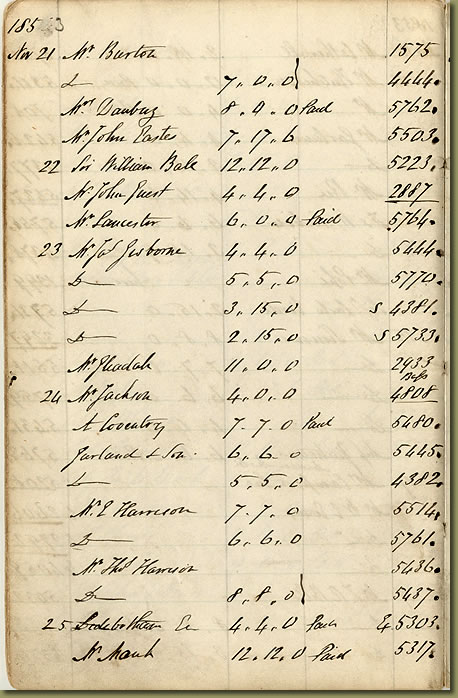 1853
Nov 21 Mr Burton 1575
D- 7.0.0 4444.
Mrs Danbuz 8.0.0 Paid 5762.
Mr John Eastes 7.17.6 5503.
22 Sir William Ball 12.12.0 5223.
Mr John Guest 4.4.0 2887
Mr Lancester 6.0.0 Paid 5764.
23 Mr Jas Gisborne 4.4.0 5444.
D- 5.5.0 5770.
D- 3.15.0 S 4381.
D- 2.15.0 S 5733.
Mr 11.0.0 2933
Bass
24 Mr Jackson 4.0.0 4808
A Coventry 7.7.0 Paid 5480.
Garland & Son. 6.6.0 5445.
D- 5.5.0 4382.
Mr E Harrison 7.7.0 5514.
D- 6.6.0 5761.
Mr Thos Harrison 5436.
D- 8.8.0 5437.
25 4.4.0 Paid & 5303.
Mr 12.12.0 Paid 5317.